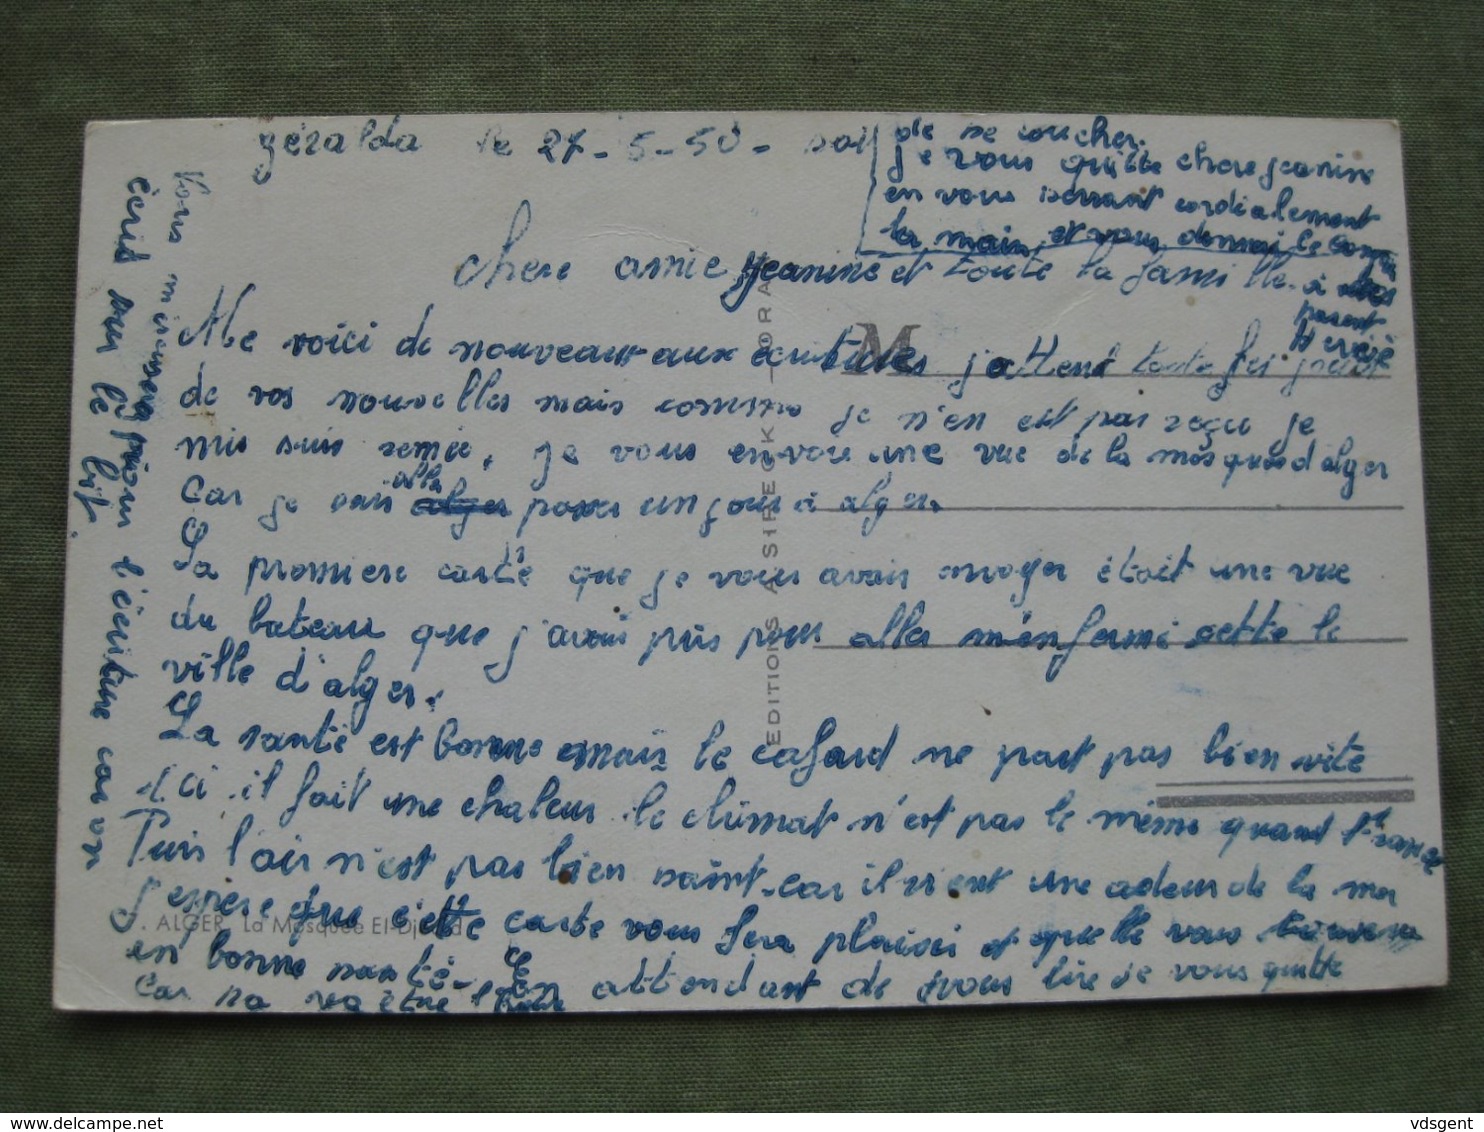 zéralda le 27-5-50- soir
chere amie jeanine et toute la famille.
Me voici de nouveau aux écritures j'attend toute les jours
de vos nouvelles mais comme je n'en est pas reçu je
mis suis remie, je vous envoie une vue de la mosquée d'alger
Car je suis allé passer un jour à alger.
La premiere carte que je vous avais envoyer était une vue
du bateau que j'avais pris pour aller
ville d'alger.
La santé est bonne mais le cafard ne part pas bien vite
ici il fait une chaleur le climat n'est pas le même quand France
Puis l'air n'est pas bien saint car il vient une odeur de la mer
J'espere que cette carte vous fera plaisir et quelle vous trouvera
en bonne santé- En attendant de vous lire je vous quitte
Car sa va être l'heure
de se coucher.
je vous quitte chere jeanine
en vous serrant cordialement
la main, et vous donnai le bonjour
à vos
parent
Hervé
Vous m'escuserez pour l'écriture car on
écris sur le lit.
EDITIONS A SIRECKY - ORAN
M
ALGER La Mosquée El-Djedid
vdsgent